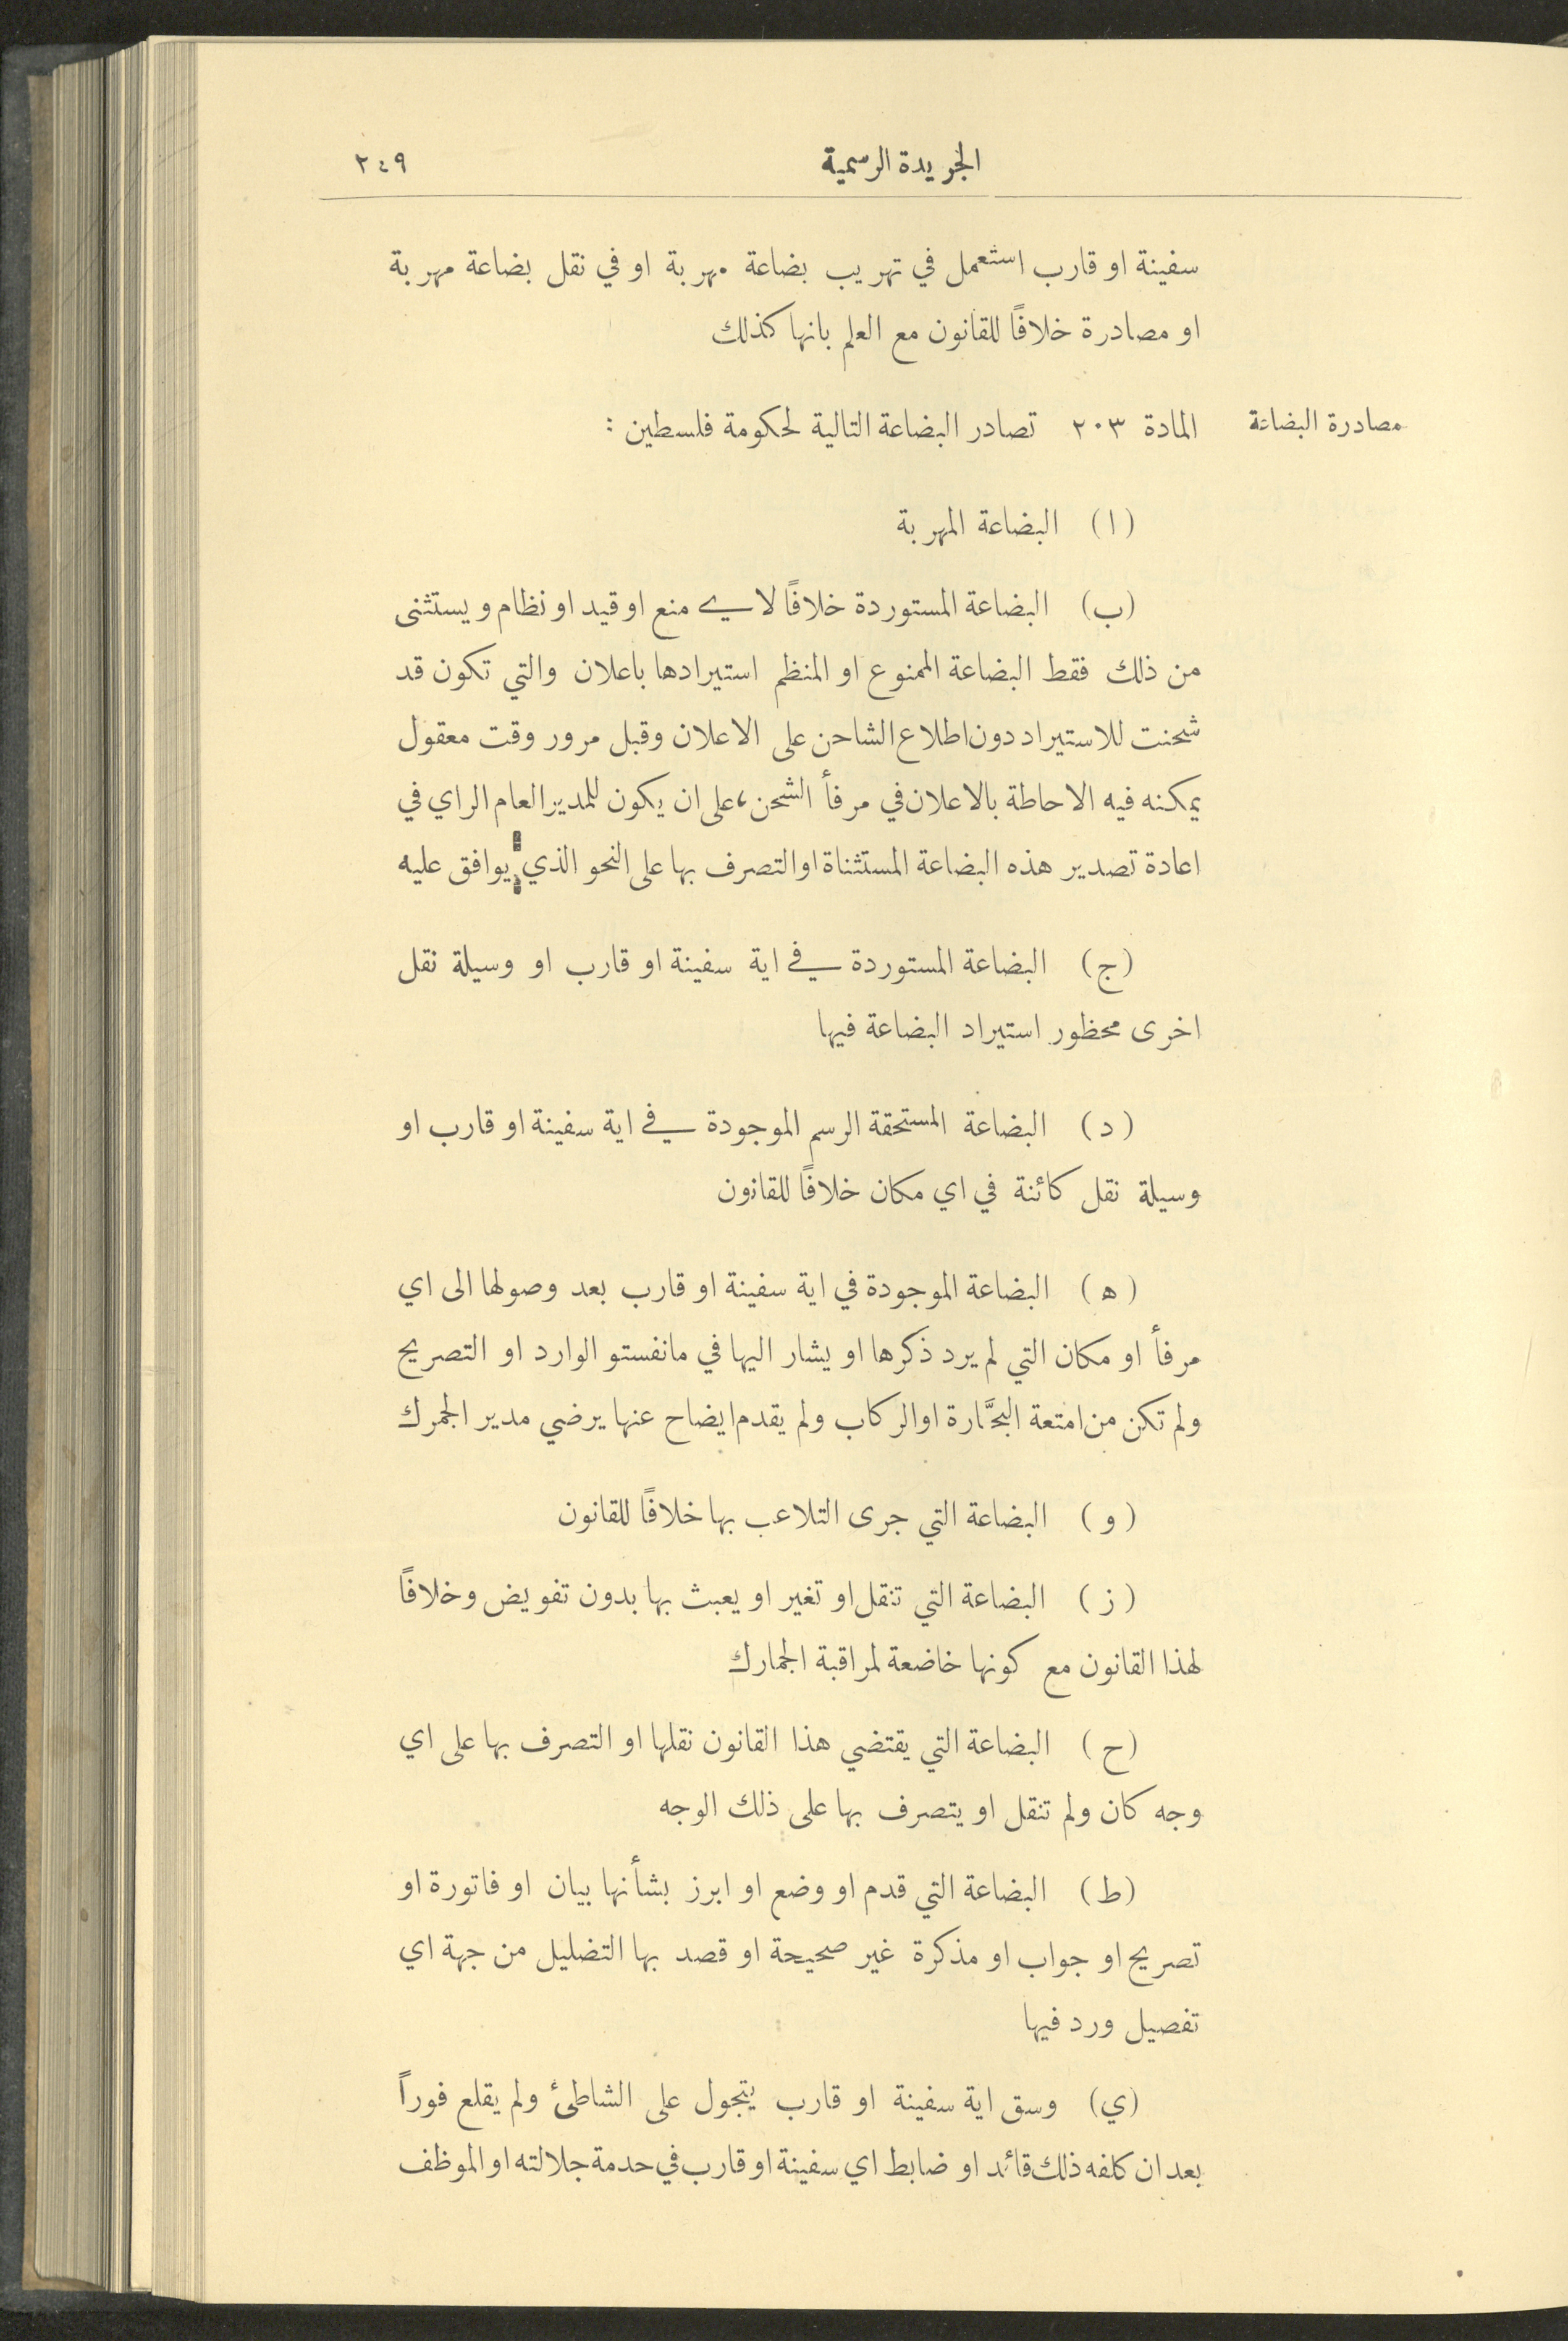 الجريدة الرسمية ٢٤٩
سفينة او قارب استعمل في تهريب بضاعة مهربة او في نقل بضاعة مهربة
او مصادرة خلافاً للقانون مع العلم بانها كذلك
مصادرة البضاعة المادة ٢٠٣ تصادر البضاعة التالية لحكومة فلسطين :
(ا) البضاعة المهربة
(ب) البضاعة المستوردة خلافاً لاي منع او قيد او نظام ويستثنى
من ذلك فقط البضاعة الممنوع او المنظم استيرادها باعلان والتي تكون قد
شحنت للاستيراد دون اطلاع الشاحن على الاعلان وقبل مرور وقت معقول
يمكنه فيه الاحاطة بالاعلان في مرفأ الشحن، على ان يكون للمدير العام الراي في
اعادة تصدير هذه البضاعة المستثناة او التصرف بها على النحو الذي يوافق عليه
(ج) البضاعة المستوردة في اية سفينة او قارب او وسيلة نقل
اخرى محظور استيراد البضاعة فيها
(د) البضاعة المستحقة الرسم الموجودة في اية سفينة او قارب او
وسيلة نقل كائنة في اي مكان خلافاً للقانون
(ه) البضاعة الموجودة في اية سفينة او قارب بعد وصولها الى اي
مرفأ او مكان التي لم يرد ذكرها او يشار اليها في مانفستو الوارد او التصريح
ولم تكن من امتعة البحَّارة او الركاب ولم يقدم ايضاح عنها يرضي مدير الجمرك
(و) البضاعة التي جرى التلاعب بها خلافاً للقانون
(ز) البضاعة التي تنقل او تغير او يعبث بها بدون تفويض وخلافاً
لهذا القانون مع كونها خاضعة لمراقبة الجمارك
(ح) البضاعة التي يقتضي هذا القانون نقلها او التصرف بها على اي
وجه كان ولم تنقل او يتصرف بها على ذلك الوجه
(ط) البضاعة التي قدم او وضع او ابرز بشأنها بيان او فاتورة او
تصريح او جواب او مذكرة غير صحيحة او قصد بها التضليل من جهة اي
تفصيل ورد فيها
(ي) وسق اية سفينة او قارب يتجول على الشاطئ ولم يقلع فوراً
بعد ان كلفه ذلك قائد او ضابط اي سفينة او قارب في حدمة جلالته او الموظف